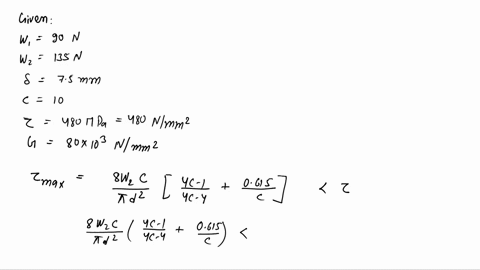 Given:
W₁ = 90 N
W₂ = 135 N
δ = 7.5 mm
C = 10
τ = 480 MPa = 480 N/mm²
G = 80×10³ N/mm²
τmax = 8W₂C/πd² [ 4C-1/4C-4 + 0.615/C ] < τ
8W₂C/πd² ( 4C-1/4C-4 + 0.615/C ) <